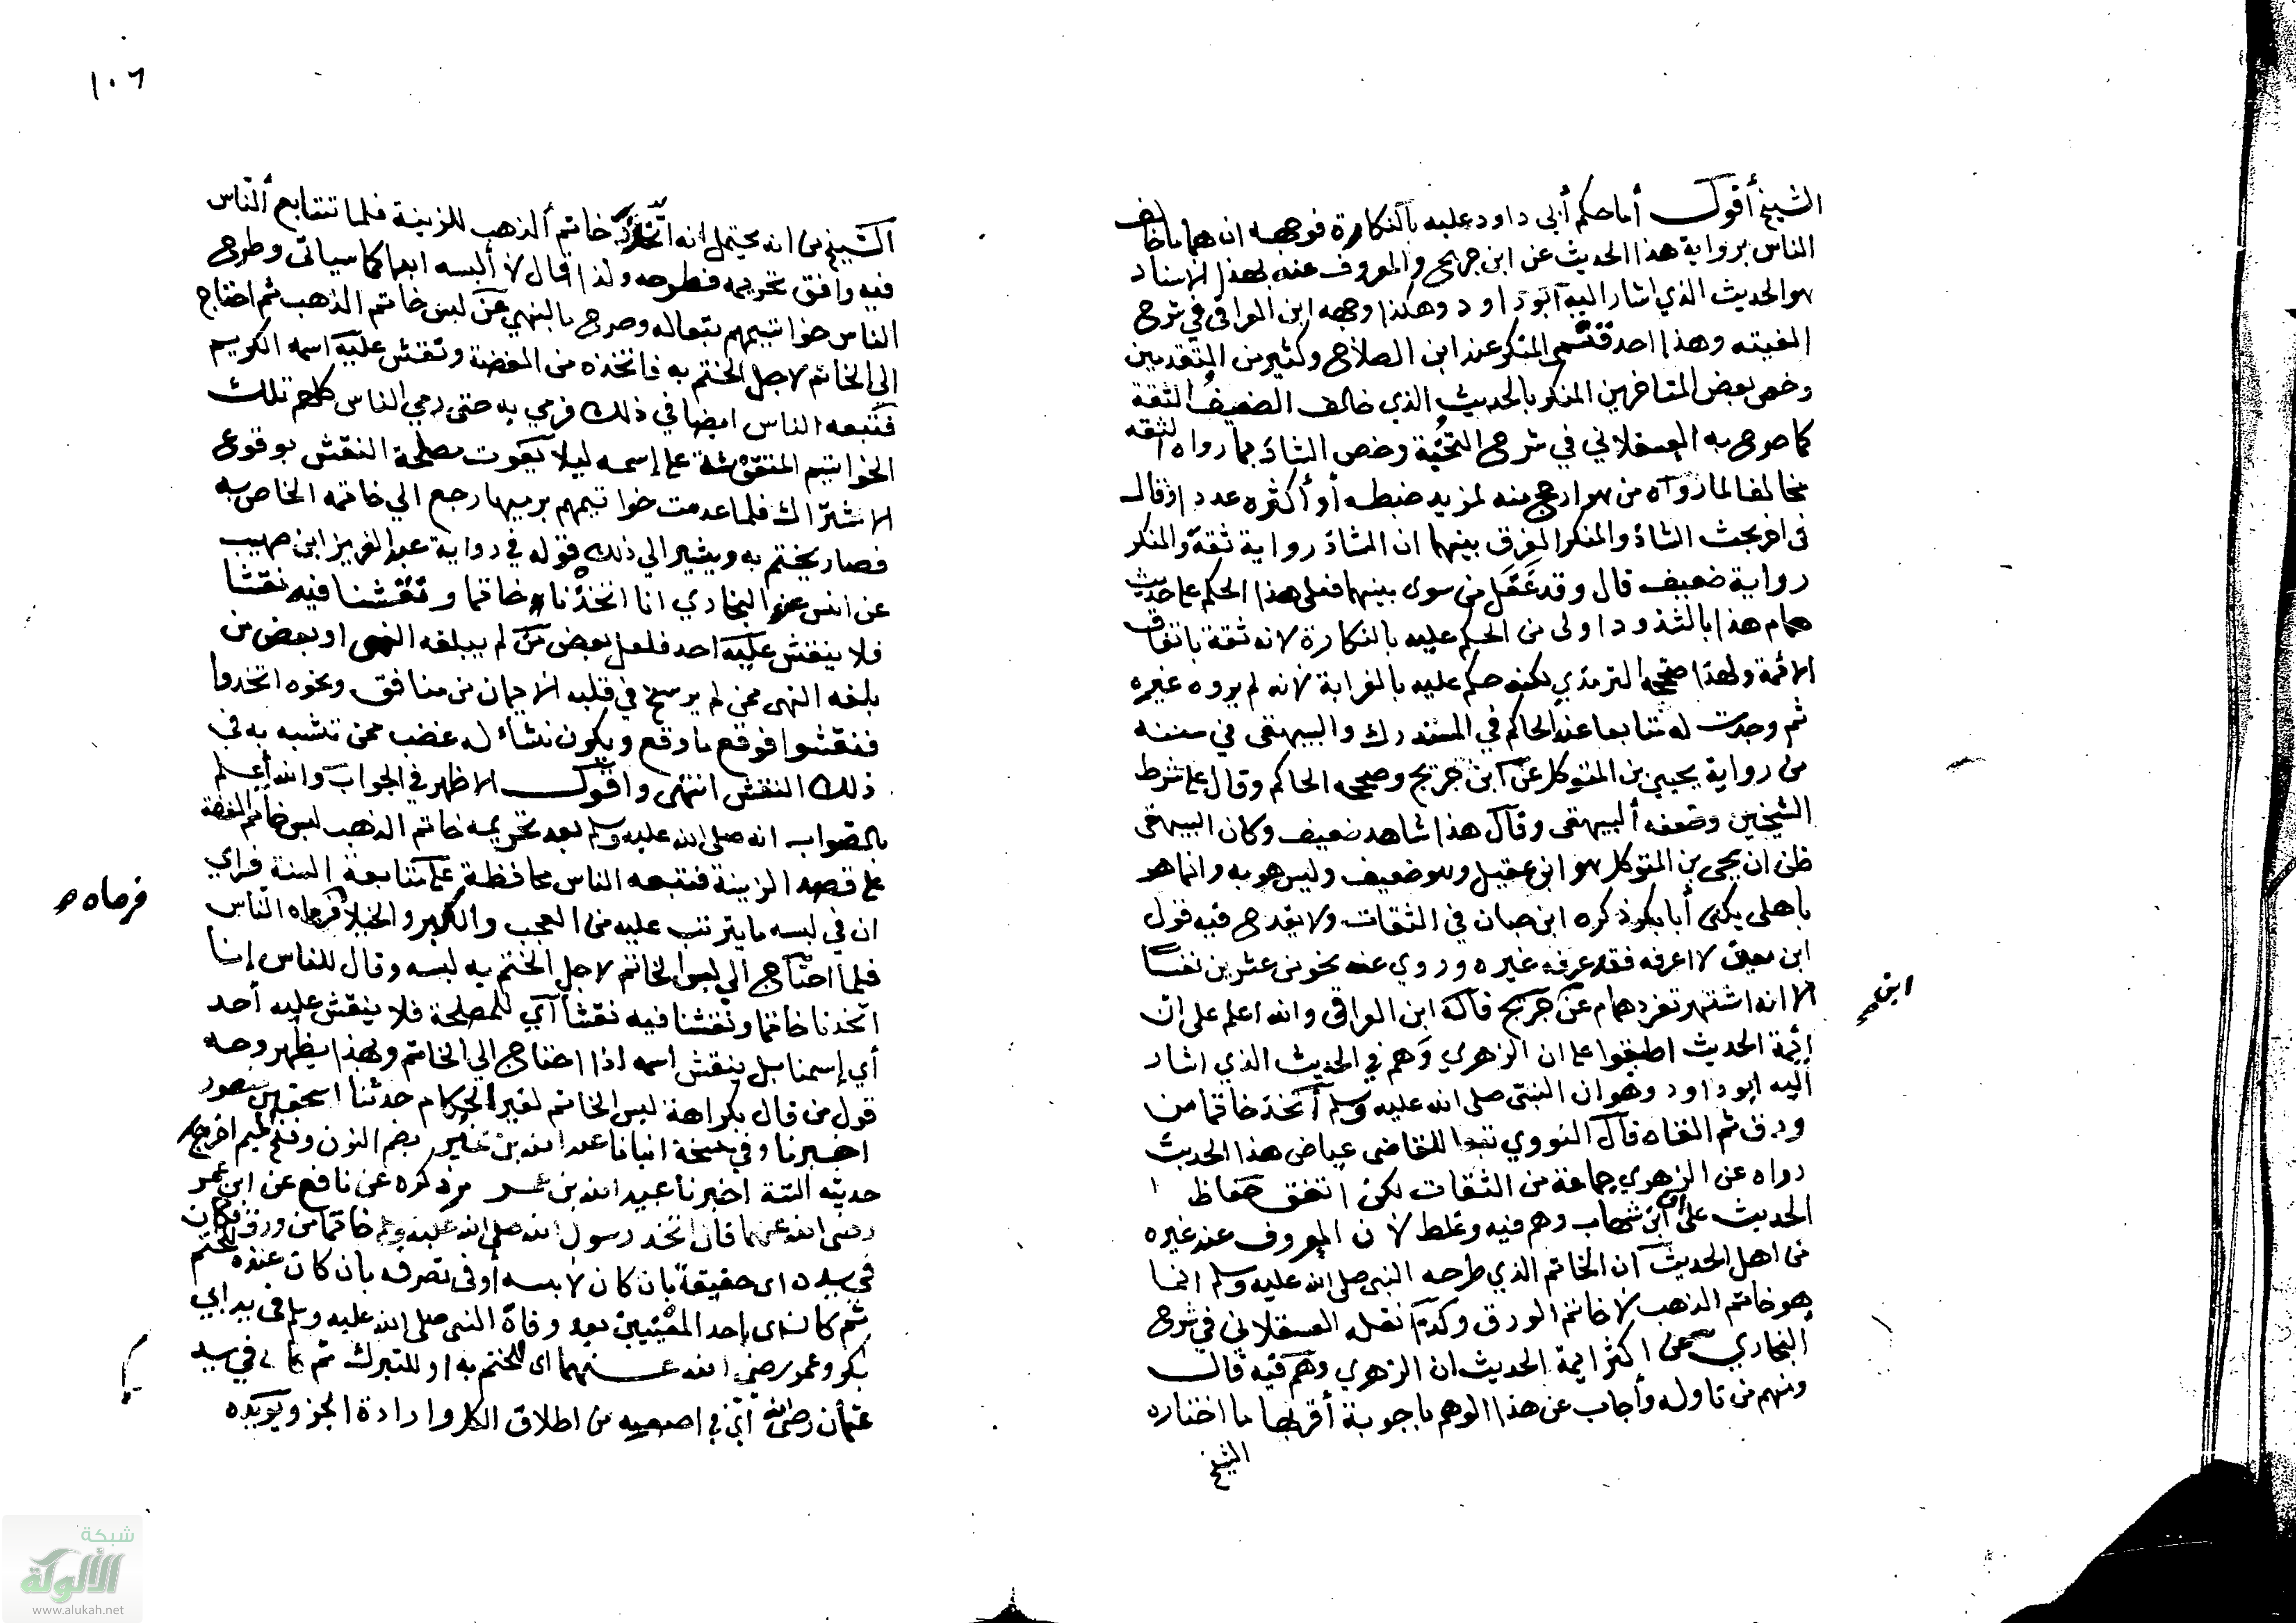 الشيخ أقول أما حكم أبي داود عليه بالنكارة فوجهه ان هماما خالف
الناس برواية هذا الحديث عن ابن جريج والمعروف عنه بهذا الاسناد
هو الحديث الذي اشار اليه ابو داود وهكذا وجهه ابن العراقي في شرح
الفيته وهذا احد قسمي المنكر عند ابن الصلاح وكثير من المتقدمين
وخص بعض المتاخرين المنكر بالحديث الذي خالف الضعيف الثقة
كما صرح به العسقلاني في شرح النخبة وخص الشاذ بما رواه الثقه
مخالفا لما رواه من هو ارجح منه لمزيد ضبطه أو أكثره عددا وقال
في اخر بحث الشاذ والمنكر الفرق بينهما ان الشاذ رواية ثقة والمنكر
رواية ضعيف قال وقد غفل من سوى بينهما فعلى هذا الحكم على حديث
همام هذا بالشذوذ اولى من الحكم عليه بالنكارة لانه ثقة باتفاق
الائمة ولهذا صححه الترمذي لكنه حكم عليه بالغرابة لانه لم يروه غيره
ثم وجدت له متابعا عند الحاكم في المستدرك والبيهقي في سننه
من رواية يحيى بن المتوكل عن ابن جريج وصححه الحاكم وقال على شرط
الشيخين وضعفه البيهقي وقال هذا شاهد ضعيف وكان البيهقي
ظن ان يحيى بن المتوكل هو ابن عقيل وهو ضعيف وليس هو به وانما هو
باهلي يكنى أبا بكر ذكره ابن حبان في الثقات ولا يقدح فيه قول
ابن معين لا اعرفه فقد عرفه غيره وروي عنه نحو من عشرين نفسا
الا انه اشتهر تفرد همام عن جريج قاله ابن العراقي والله اعلم على ان
ابن
أيمة الحديث اطبقوا على ان الزهري وهم في الحديث الذي اشار
اليه ابو داود وهو ان النبي صلى الله عليه وسلم أتخذ خاتما من
ورق ثم القاه قال النووي تبعا للقاضي عياض هذا الحديث
رواه عن الزهري جماعة من الثقات لكن اتفق حفاظ
الحديث على ان ابن شهاب وهم فيه وغلط لأن المعروف عند غيره
من اهل الحديث ان الخاتم الذي طرحه النبي صلى الله عليه وسلم انما
هو خاتم الذهب لا خاتم الورق وكذا نقله العسقلاني في شرح
البخاري عن اكثر ايمة الحديث ان الزهري وهم فيه قال
ومنهم من تاوله وأجاب عن هذا الوهم باجوبة أقربها ما اختاره
الشيخ
١٠٦
الشيخ من انه يحتمل انه اتخذ خاتم الذهب للزينة فلما تتابع الناس
فيه وافق تحريمه فطرحه ولذا قال لا ألبسه ابدا كما سياتي وطرح
الناس خواتيمهم تبعا له وصرح بالنهي عن لبس خاتم الذهب ثم احتاج
الى الخاتم لاجل الختم به فاتخذه من الفضة ونقش عليه اسمه الكريم
فتبعه الناس ايضا في ذلك فرمي به حتى رمي الناس كلهم تلك
الخواتيم المنقوشة على إسمه ليلا يفوت مصلحة النقش بوقوع
الاشتراك فلما عدمت خواتيمهم برميها رجع الي خاتمه الخاص به
فصار يختم به ويشير الي ذلك قوله في رواية عبد العزيز ابن صهيب
عن انس عند البخاري انا اتخذنا خاتما ونقشنا فيه نقشا
فلا ينقش عليه احد فلعل بعض من لم يبلغه النهى او بعض من
بلغه النهى ممن لم يرسخ في قلبه الايمان من منافق ونحوه اتخذوا
فنقشوا فوقع ما وقع ويكون نشاء له غضب ممن تشبه به في
ذلك النقش انتهى واقول الاظهر في الجواب والله أعلم
بالصواب انه صلى الله عليه وسلم بعد تحريمه خاتم الذهب لبس خاتم الفضة
على قصد الزينة فتبعه الناس محافظة على متابعة السنة فراي
ان في لبسه ما يترتب عليه من العجب والكبر والخيلا فرماه الناس
فرماه ص
فلما احتاج الي لبس الخاتم لاجل الختم به لبسه وقال للناس إنا
اتخذنا خاتما ونقشنا فيه نقشا أي للمصلحة فلا ينقش عليه أحد
أي إسمنا بل ينقش اسمه اذا احتاج الي الخاتم وبهذا يظهر وجه
قول من قال بكراهة لبس الخاتم لغير الحكام حدثنا اسحق بن منصور
اخبرنا وفي نسخة انبانا عبد الله بن نمير بضم النون وفتح الميم اخرج
حديثه الستة اخبرنا عبيد الله بن عمر مر ذكره عن نافع عن ابن عمر
رضى الله عنهما قال اتخذ رسول الله صلى الله عليه وسلم خاتما من ورق فكان
في يده اى حقيقة بان كان لابسه أو في تصرفه بان كان عنده للختم
ثم كان اى باحد المعنيين بعد وفاة النبي صلى الله عليه وسلم في يد ابي
بكر وعمر رضي الله عنهما اى للختم به او للتبرك ثم كان في يد
عثمان رضي الله أي في اصبعيه من اطلاق الكل وارادة الجز ويويده
شبكة
الألوكة
www.alukah.net